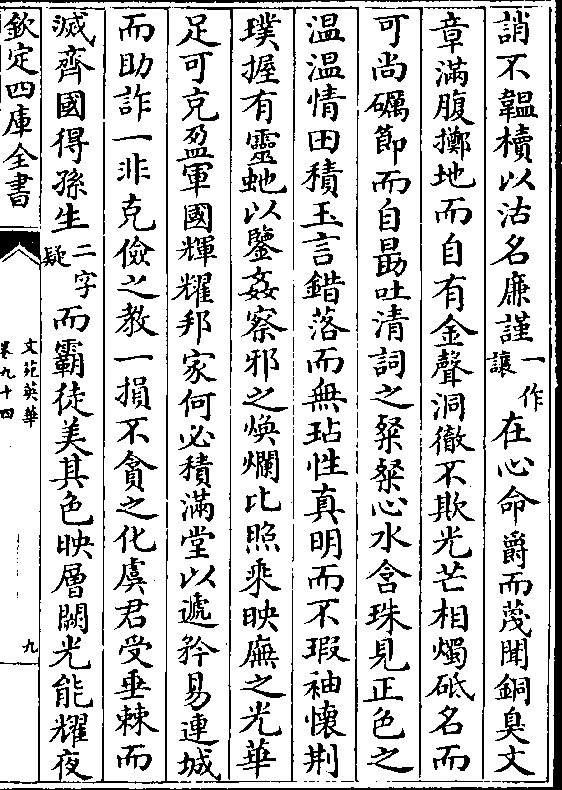 誚不韞櫝以沽名廉謹一作讓在心命爵而蔑聞銅臭文
章滿腹擲地而自有金聲洞徹不欺光芒相燭砥名而
可尚礪節而自勗吐清詞之粲粲心水含珠見正色之
温温情田積玉言錯落而無玷性真明而不瑕袖懷荆
璞握有靈虵以鑒姦察邪之煥爛比照乘映廡之光華
足可充盈軍國輝耀邦家何必積滿堂以遞矜易連城
而助詐一非克儉之教一損不貪之化虞君受垂棘而
滅齊國得孫生二字疑而霸徒美其色映層闕光能耀夜
欽定四庫全書
文苑英華
卷九十四
九